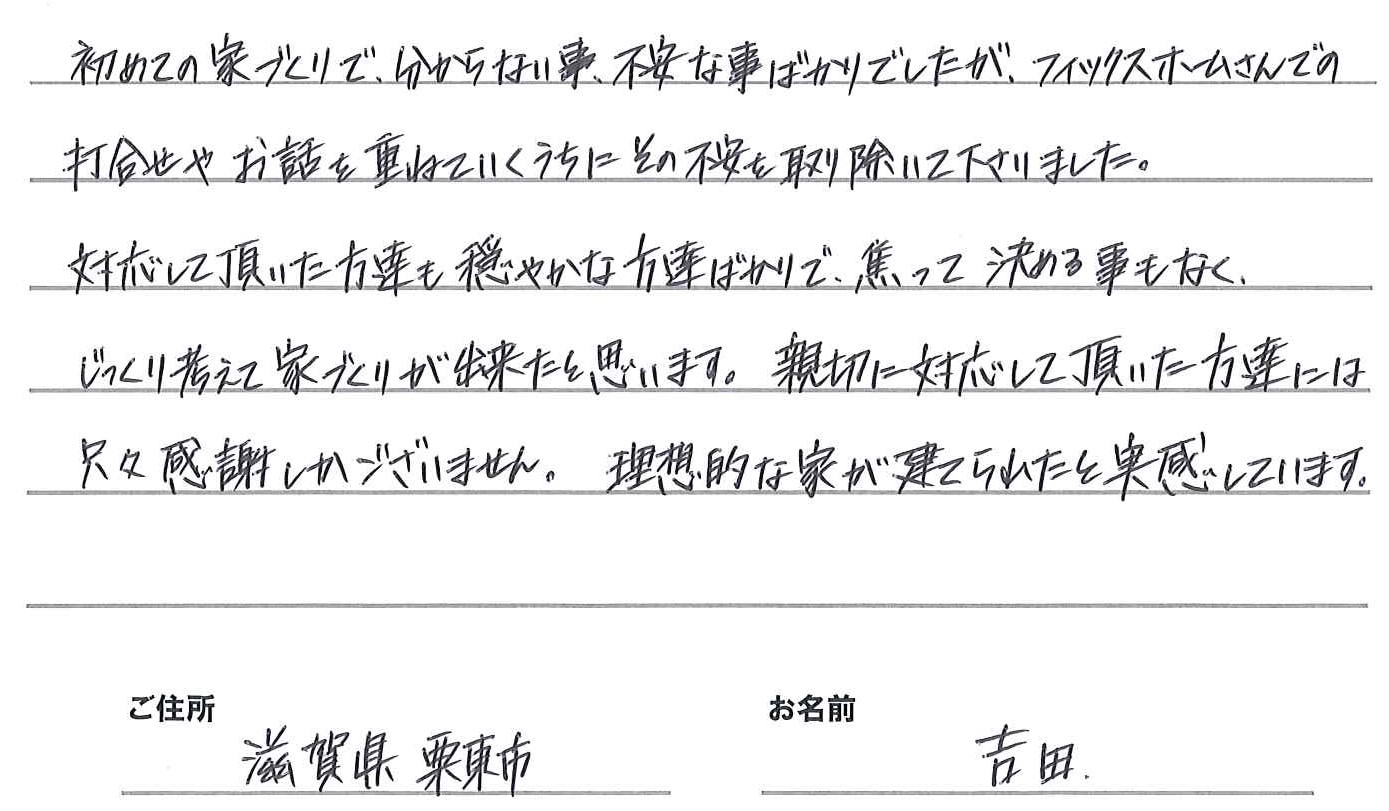 初めての家づくりで、分からない事、不安な事ばかりでしたが、フィックスホームさんでの
打合せや お話を重ねていくうちに その不安を取り除いて下さいました。
対応して頂いた方達も穏やかな方達ばかりで、焦って決める事もなく、
じっくり考えて家づくりが出来たと思います。親切に対応して頂いた方達には
只々感謝しかございません。理想的な家が建てられたと実感しています。
ご住所
滋賀県 栗東市
お名前
吉田.